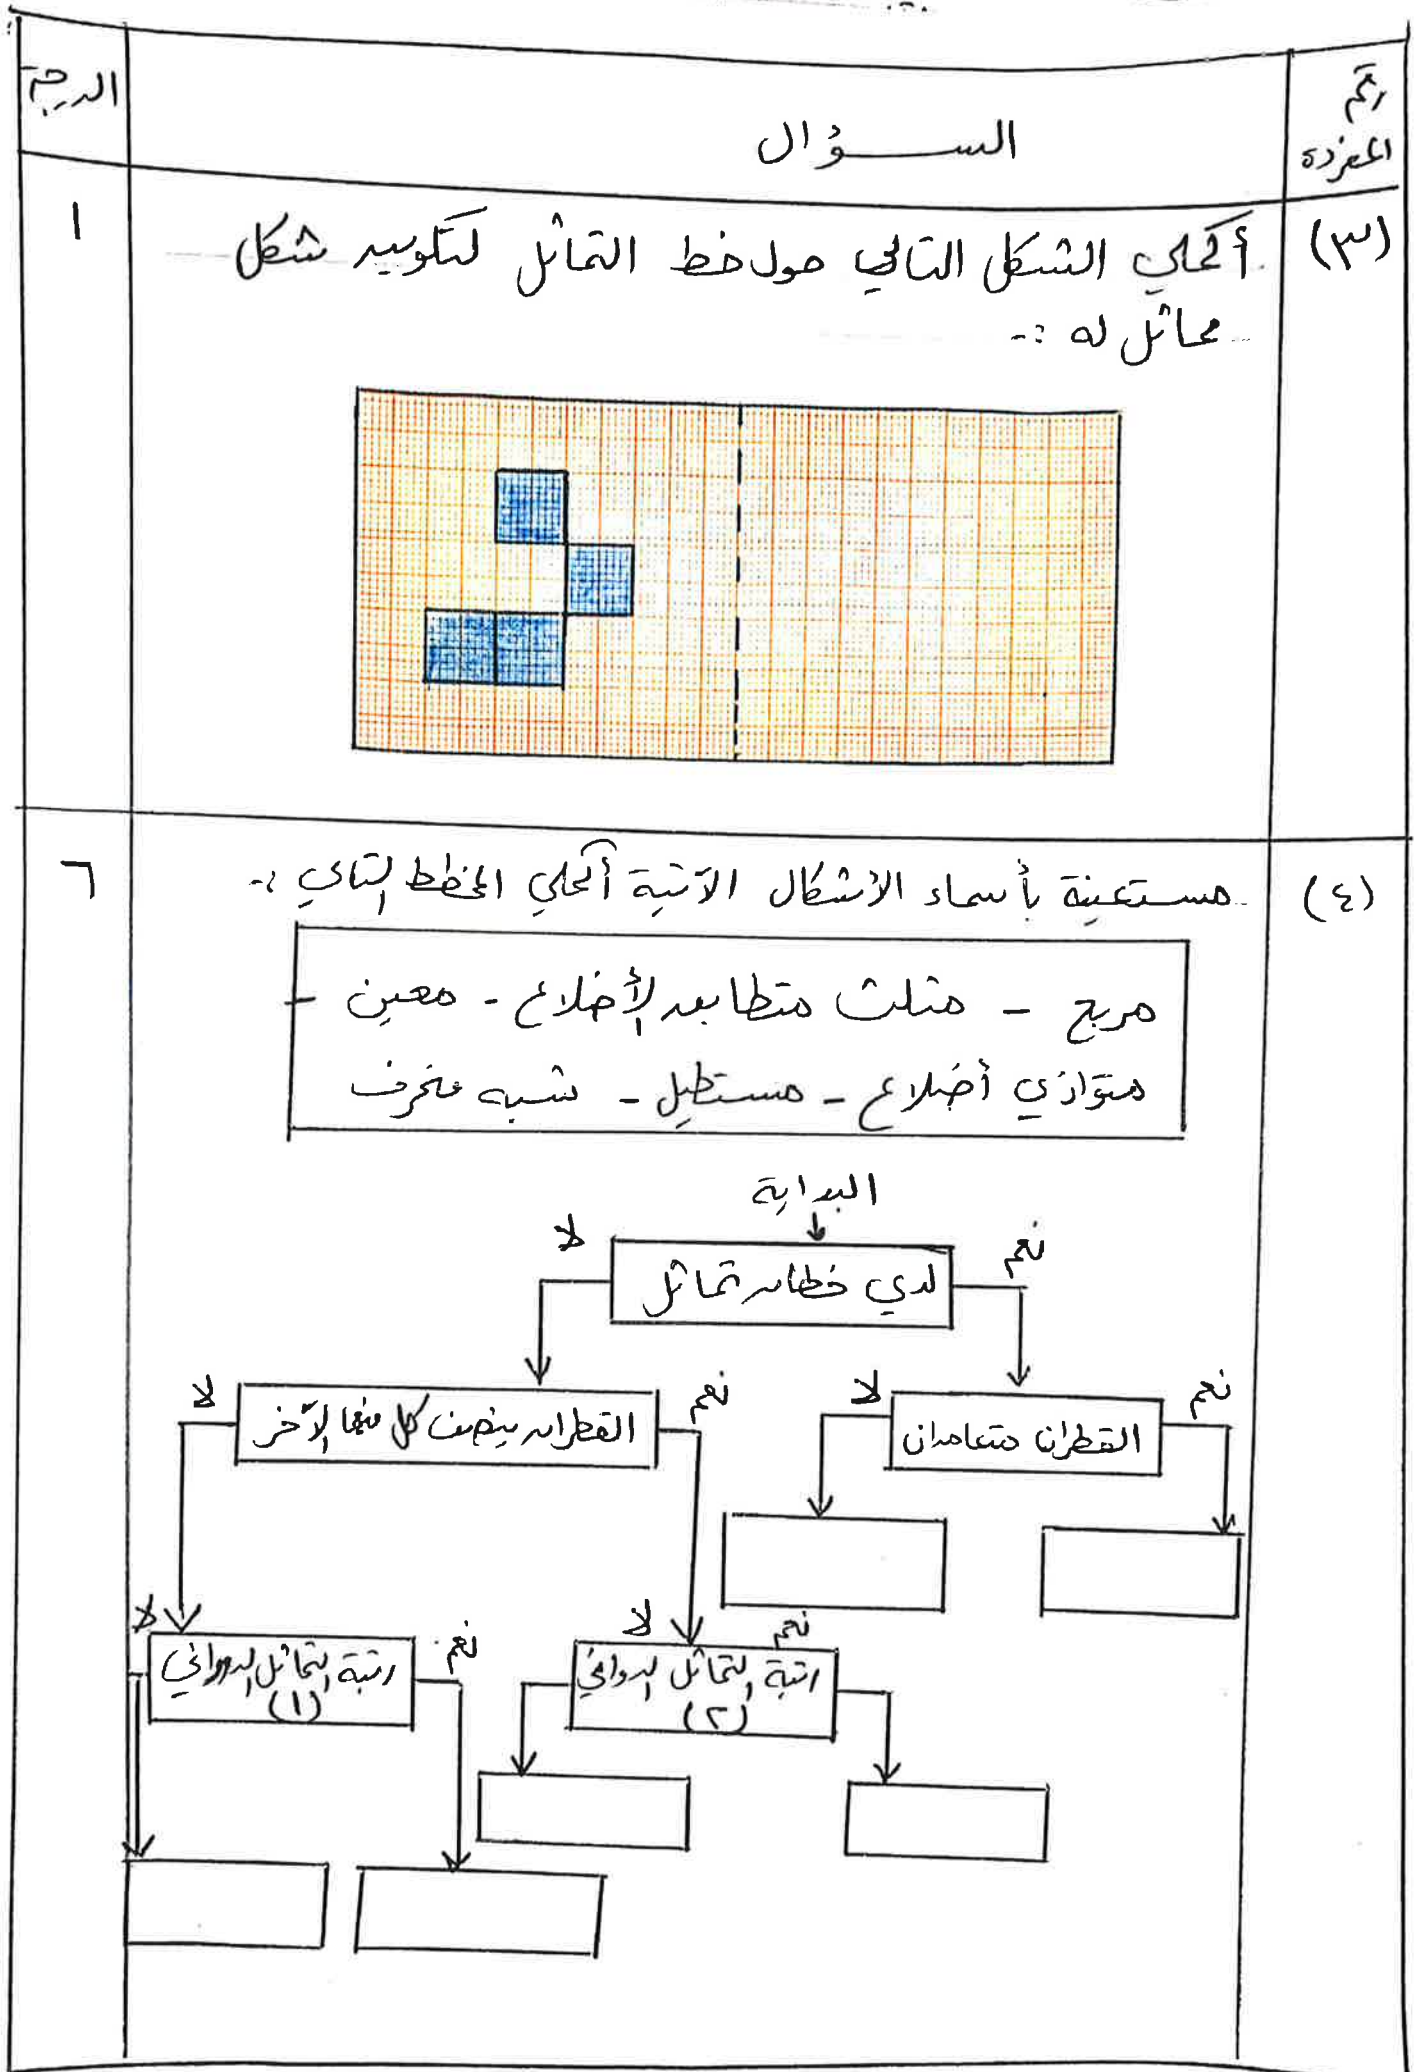 رقم المفردة
السؤال
الدرجة
(٣)
أكملي الشكل التالي حول خط التماثل لتكوين شكل
مماثل له :-
١
(٤)
مستعينة بأسماء الأشكال الآتية أكملي المخطط التالي :-
٦
مربع - مثلث متطابق الأضلاع - معين -
متوازي أضلاع - مستطيل - شبه منحرف
البداية
لدي خطان تماثل
نعم
لا
القطران متعامدان
نعم
لا
القطران ينصف كل منهما الآخر
نعم
لا
رتبة التماثل الدوراني
(٢)
نعم
لا
رتبة التماثل الدوراني
(١)
نعم
لا